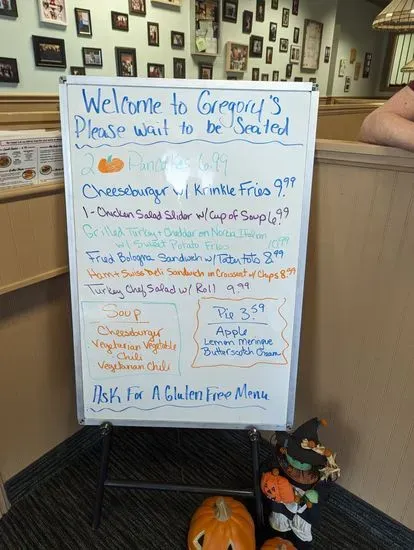 Welcome to Gregory's
Please wait to be Seated
2 Pancakes 6.99
Cheeseburger w/ Krinkle Fries 9.99
1- Chicken Salad Slider w/ Cup of Soup 6.99
Grilled Turkey + Cheddar on Norca Italian
w/ Sweet Potato Fries 10.99
Fried Bologna Sandwich w/ Tater tots 8.99
Ham + Swiss Deli Sandwich on Croissant w/ Chips 8.99
Turkey Chef Salad w/ Roll 9.99
Soup
Cheeseburger
Vegetarian Vegetable
Chili
Vegetarian Chili
Pie 3.59
Apple
Lemon Meringue
Butterscotch Cream
Ask For A Gluten Free Menu